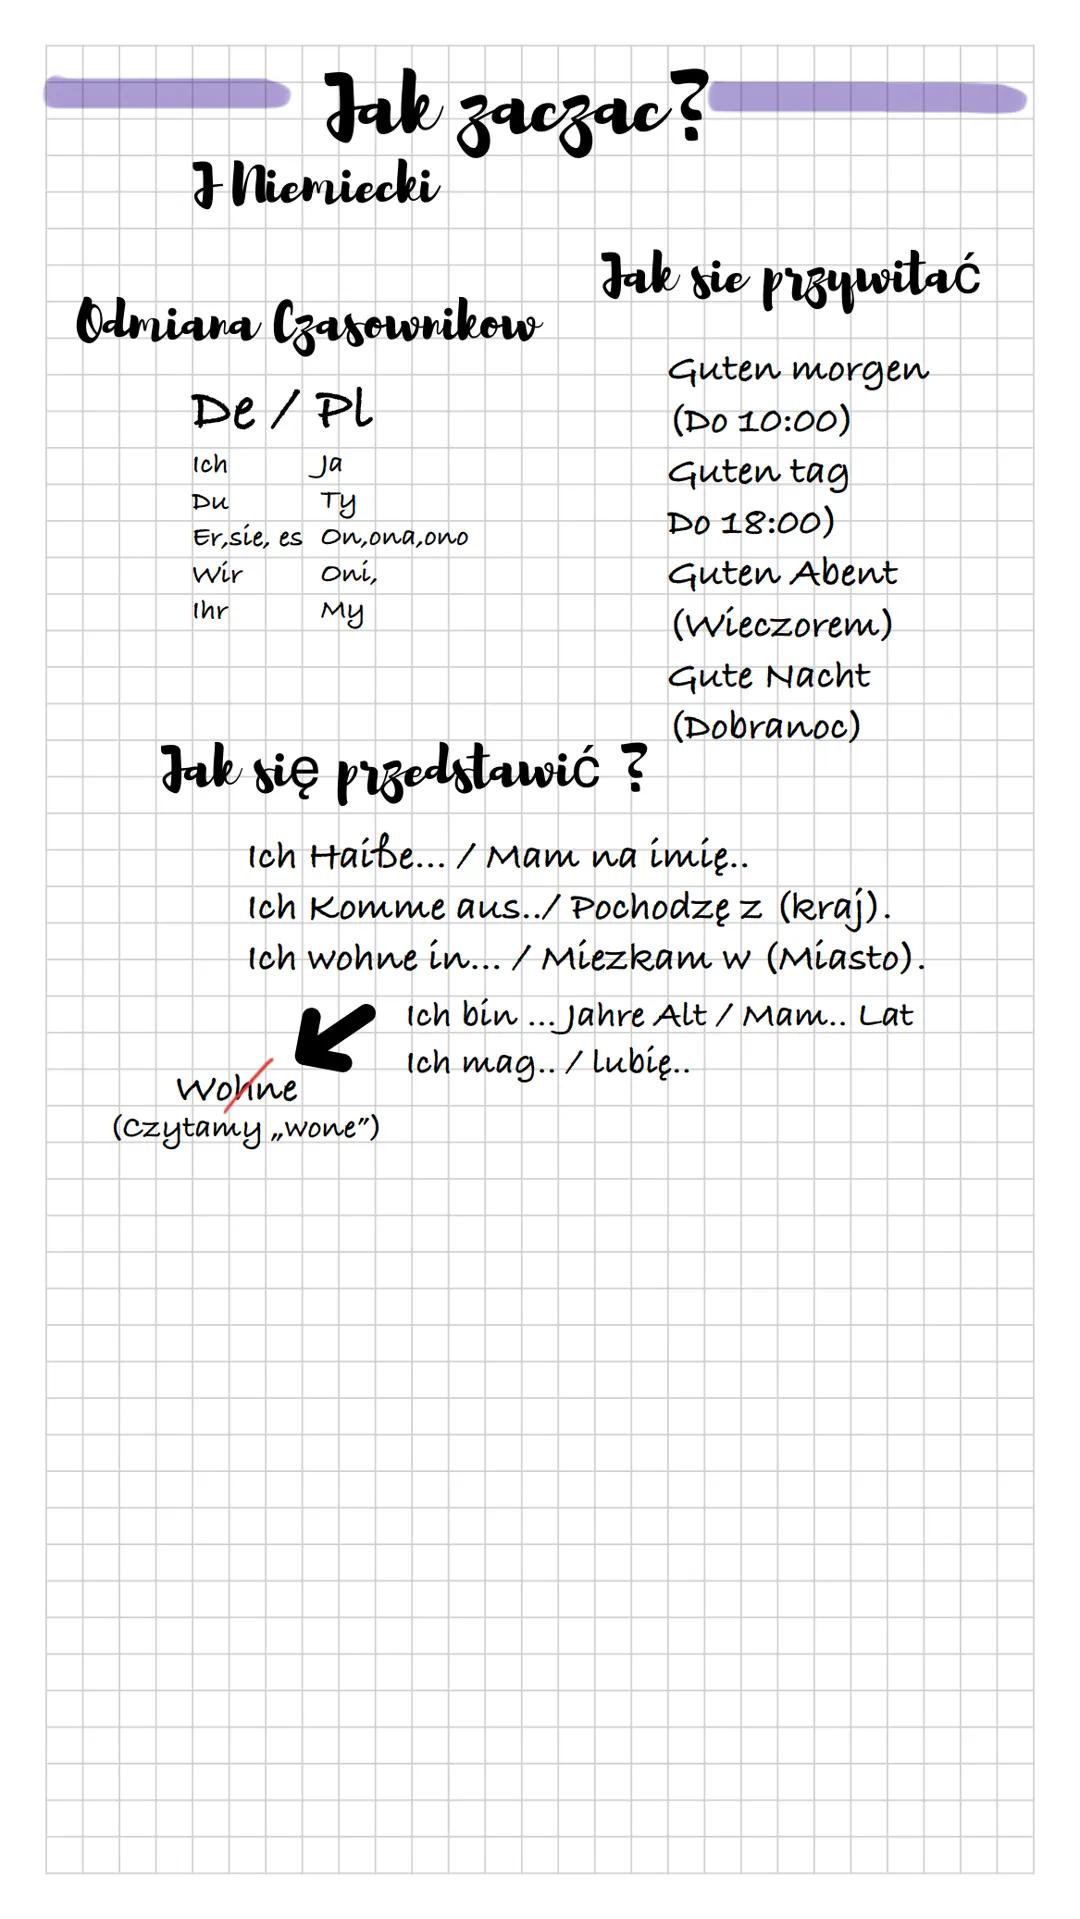 Jak zaczac?
J Niemiecki
Odmiana Czasownikow
De / Pl
Ich Ja
Du Ty
Er,sie, es On,ona,ono
Wir Oni,
Ihr My
Jak sie przywitać
Guten morgen
(Do 10:00)
Guten tag
Do 18:00)
Guten Abent
(Wieczorem)
Gute Nacht
(Dobranoc)
Jak się przedstawić ?
Ich Haiße... / Mam na imię..
Ich Komme aus../ Pochodzę z (kraj).
Ich wohne in... / Miezkam w (Miasto).
Ich bin ... Jahre Alt / Mam.. Lat
Ich mag.. / lubię..
Wohne
(Czytamy „wone”)